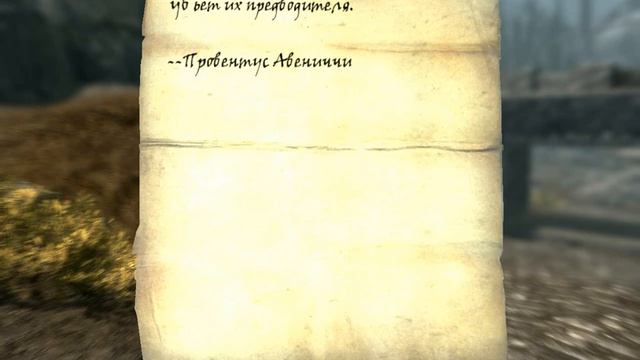 убьет их предводителя.
--Провентус Авениччи